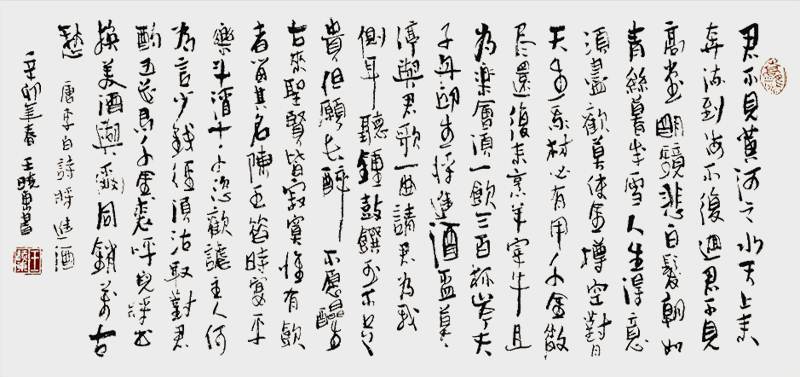 君不見黃河之水天上來
奔流到海不復迴君不見
高堂明鏡悲白髮朝如
青絲暮成雪人生得意
須盡歡莫使金樽空對月
天生我材必有用千金散
盡還復來烹羊宰牛且
為樂會須一飲三百杯岑夫
子丹邱生將進酒盃莫
停與君歌一曲請君為我
側耳聽鍾鼓饌玉不足
貴但願長醉不願醒
古來聖賢皆寂寞惟有飲
者留其名陳王昔時宴平
樂斗酒十千恣歡謔主人何
為言少錢徑須沽取對君
酌五花馬千金裘呼兒將出
換美酒與爾同銷萬古
愁 唐李白詩將進酒
辛卯年春王曉書